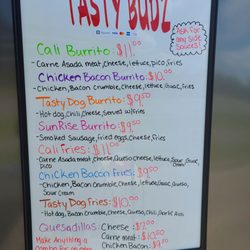 TASTY BUDZ
Ask for
any side
Sauces!
Cali Burrito: $11.00
- Carne Asada meat, cheese, lettuce, pico, fries
Chicken Bacon Burrito: $10.00
- Chicken, Bacon crumble, cheese, lettuce,
Tasty Dog Burrito: $9.50
- Hot dog, Chili, cheese, served w/fries
SunRise Burrito: $9.50
- Smoked Sausage, fried eggs, cheese, fries
Cali fries: $11.00
- Carne Asada meat, cheese, Queso cheese, lettuce, Sour Cream
Chicken Bacon Fries: $9.00
- Chicken, Bacon, Crumble, cheese, lettuce, Queso,
Sour Cream
Tasty Dog Fries: $10.50
- Hot dog, Bacon Crumble, cheese, Queso, Chili,
Quesadillas: Cheese: $7.00
Make Anything a
Carne meat: $10.00
Chicken Bacon: $9.00